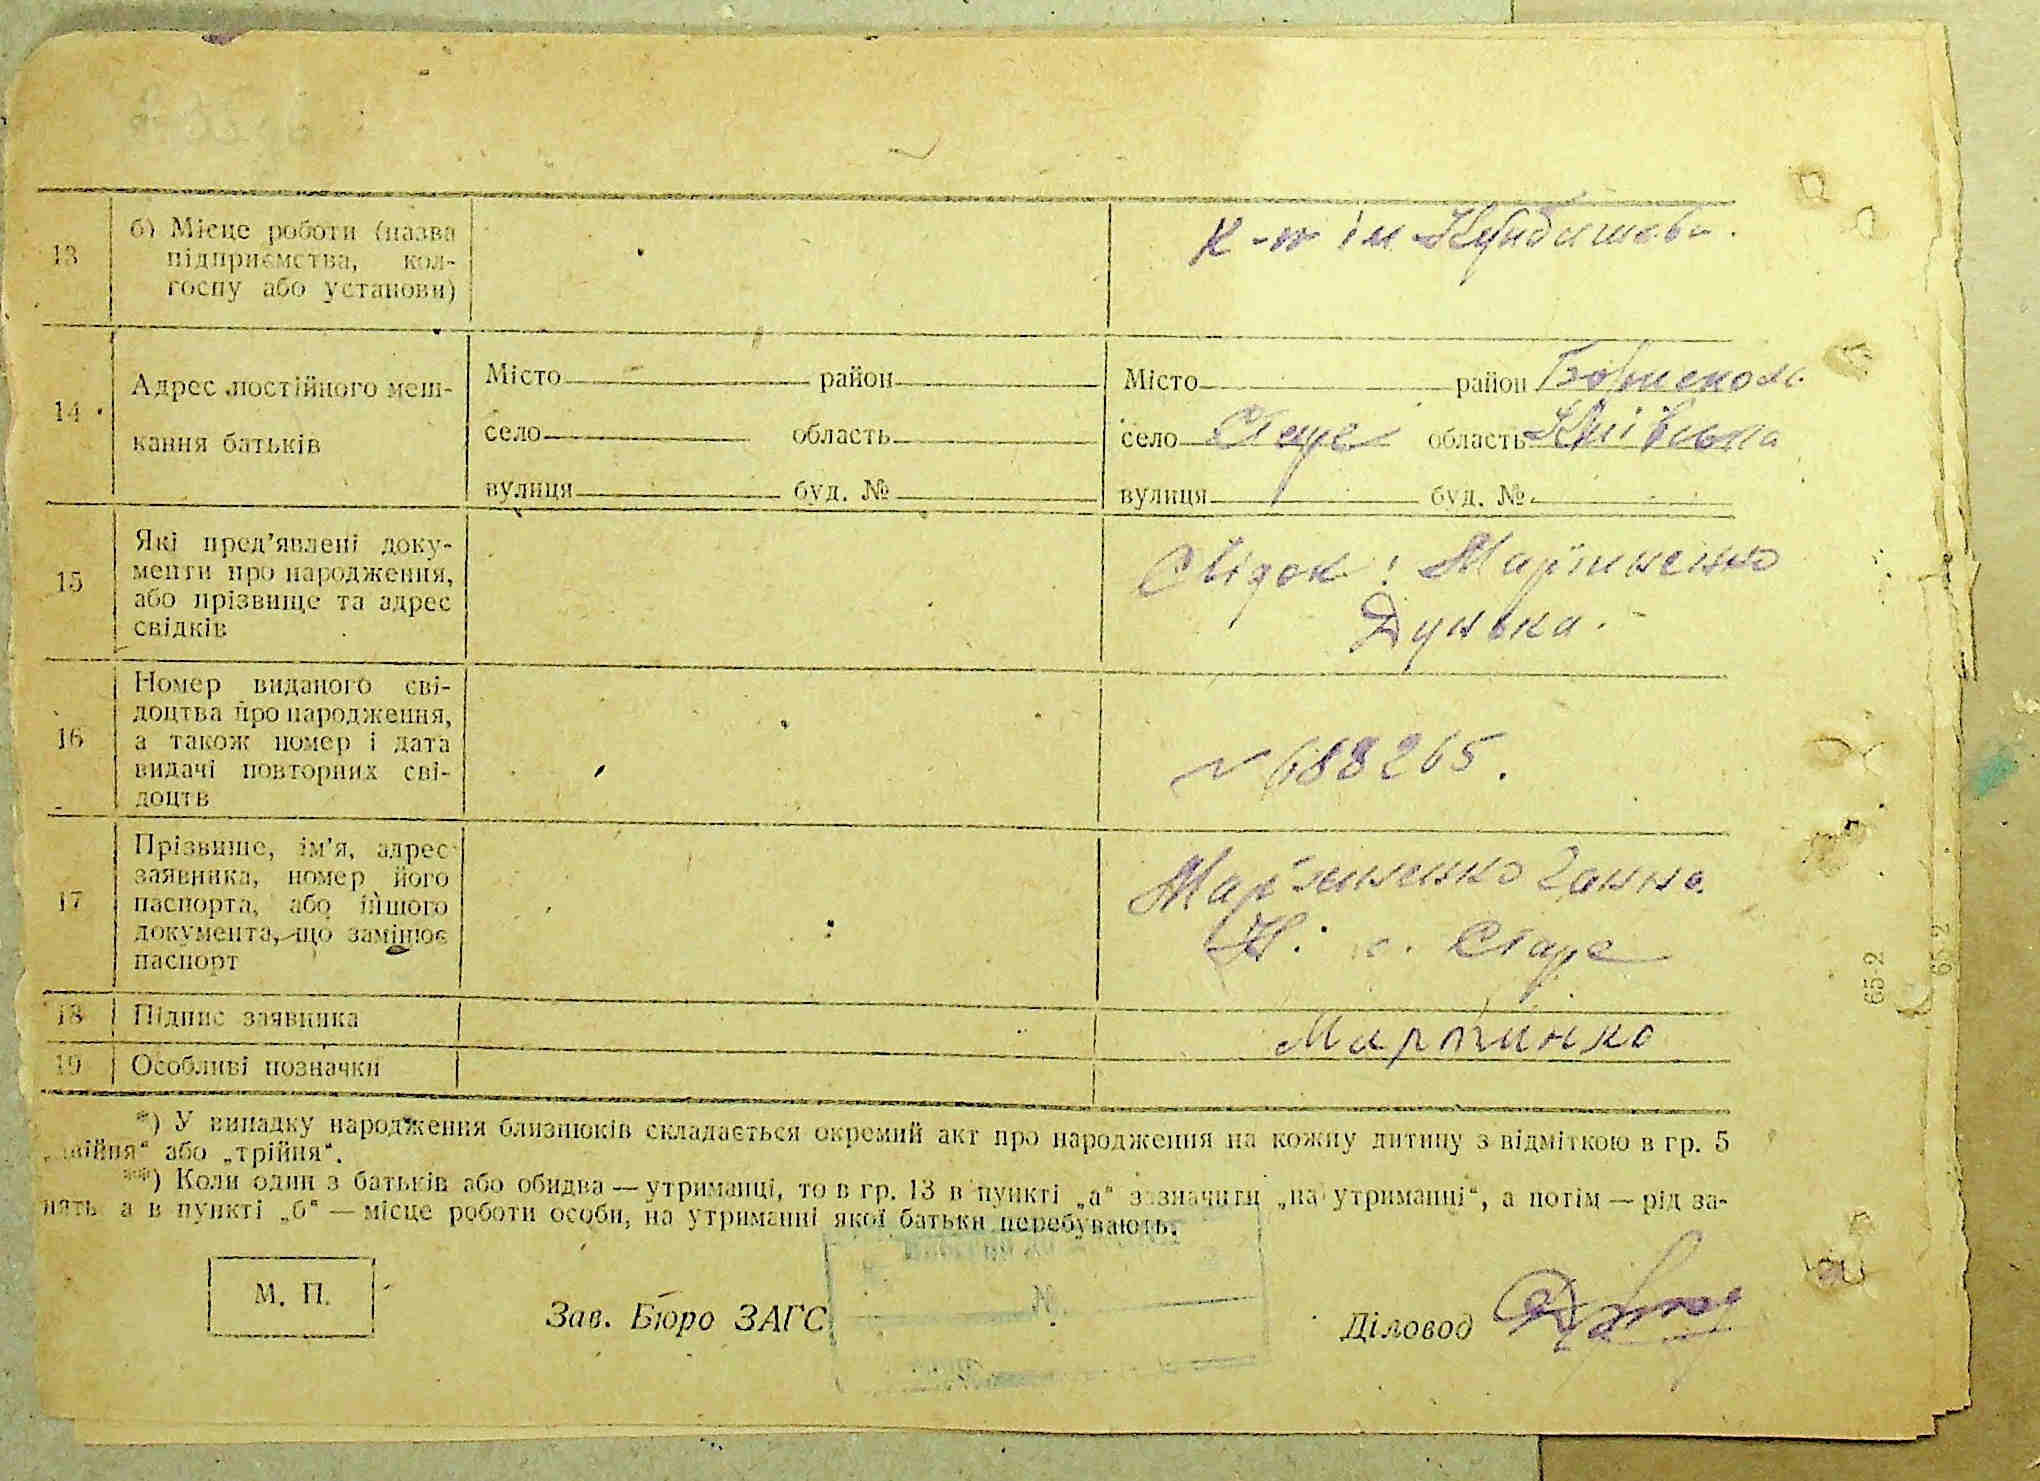 13
б) Місце роботи (назва
підприємства, кол-
госпу або установи)
к-п ім Куйбишева.
14
Адрес постійного меш-
кання батьків
Місто район
село область
вулиця буд. №
Місто район Бориспольс.
село Старе область Київська
вулиця буд. №
15
Які пред'явлені доку-
менти про народження,
або прізвище та адрес
свідків
Свідок: Мартиненко
Дунька.
16
Номер виданого сві-
доцтва про народження,
а також номер і дата
видачі повторних сві-
доцтв
№ 688265.
17
Прізвище, ім'я, адрес
заявника, номер його
паспорта, або іншого
документа, що замінює
паспорт
Мартиненко Ганна
Н. с. Старе
18
Підпис заявника
Мартинко
19
Особливі позначки
*) У випадку народження близнюків складається окремий акт про народження на кожну дитину з відміткою в гр. 5
„двійня“ або „трійня“.
**) Коли один з батьків або обидва — утриманці, то в гр. 13 в пункті „а“ зазначити „на утриманні“, а потім — рід за-
нять а в пункті „б“ — місце роботи особи, на утриманні якої батьки перебувають.
М. П.
Зав. Бюро ЗАГС
Діловод
65-2
65-2